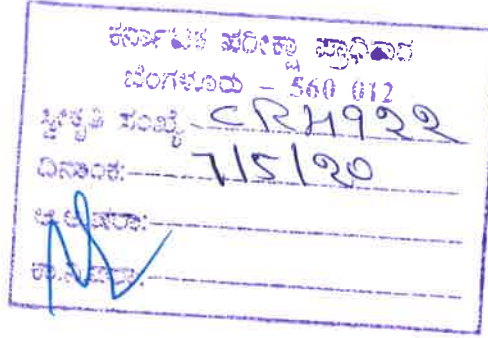 ಕರ್ನಾಟಕ ಪರೀಕ್ಷಾ ಪ್ರಾಧಿಕಾರ
ಬೆಂಗಳೂರು - 560 012
ಸ್ವೀಕೃತಿ ಸಂಖ್ಯೆ
ದಿನಾಂಕ: 7/5/20